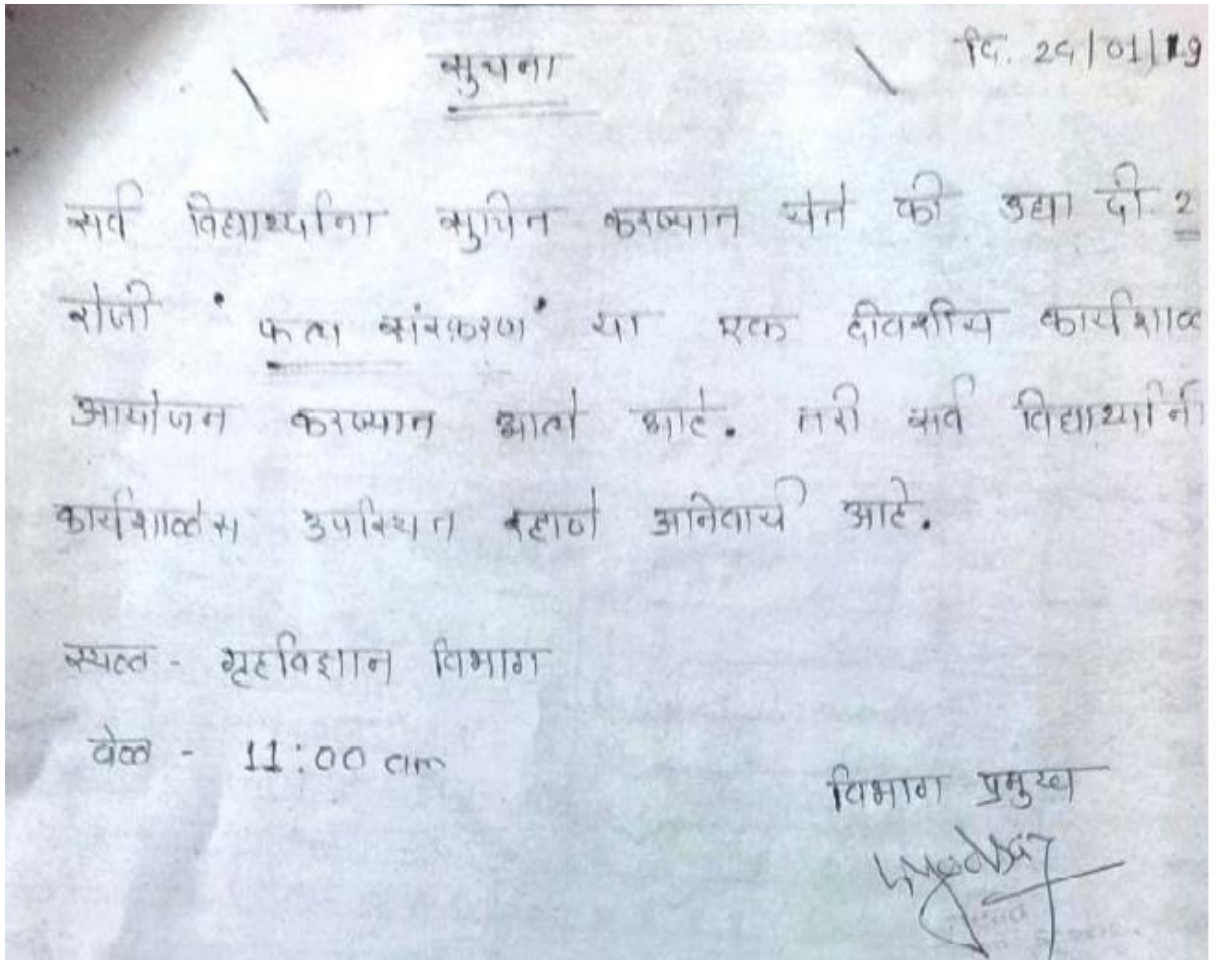 सुचना
दि. 24/01/19
सर्व विद्यार्थ्यांना सुचित करण्यात येते की उद्या दी. 2
रोजी "फळ संस्करण" या एक दीवशीय कार्यशाळ
आयोजन करण्यात आले आहे. तरी सर्व विद्यार्थ्यांनी
कार्यशाळेस उपस्थित रहाणे अनिवार्य आहे.
स्थळ - गृहविज्ञान विभाग
वेळ - 11:00 am
विभाग प्रमुख